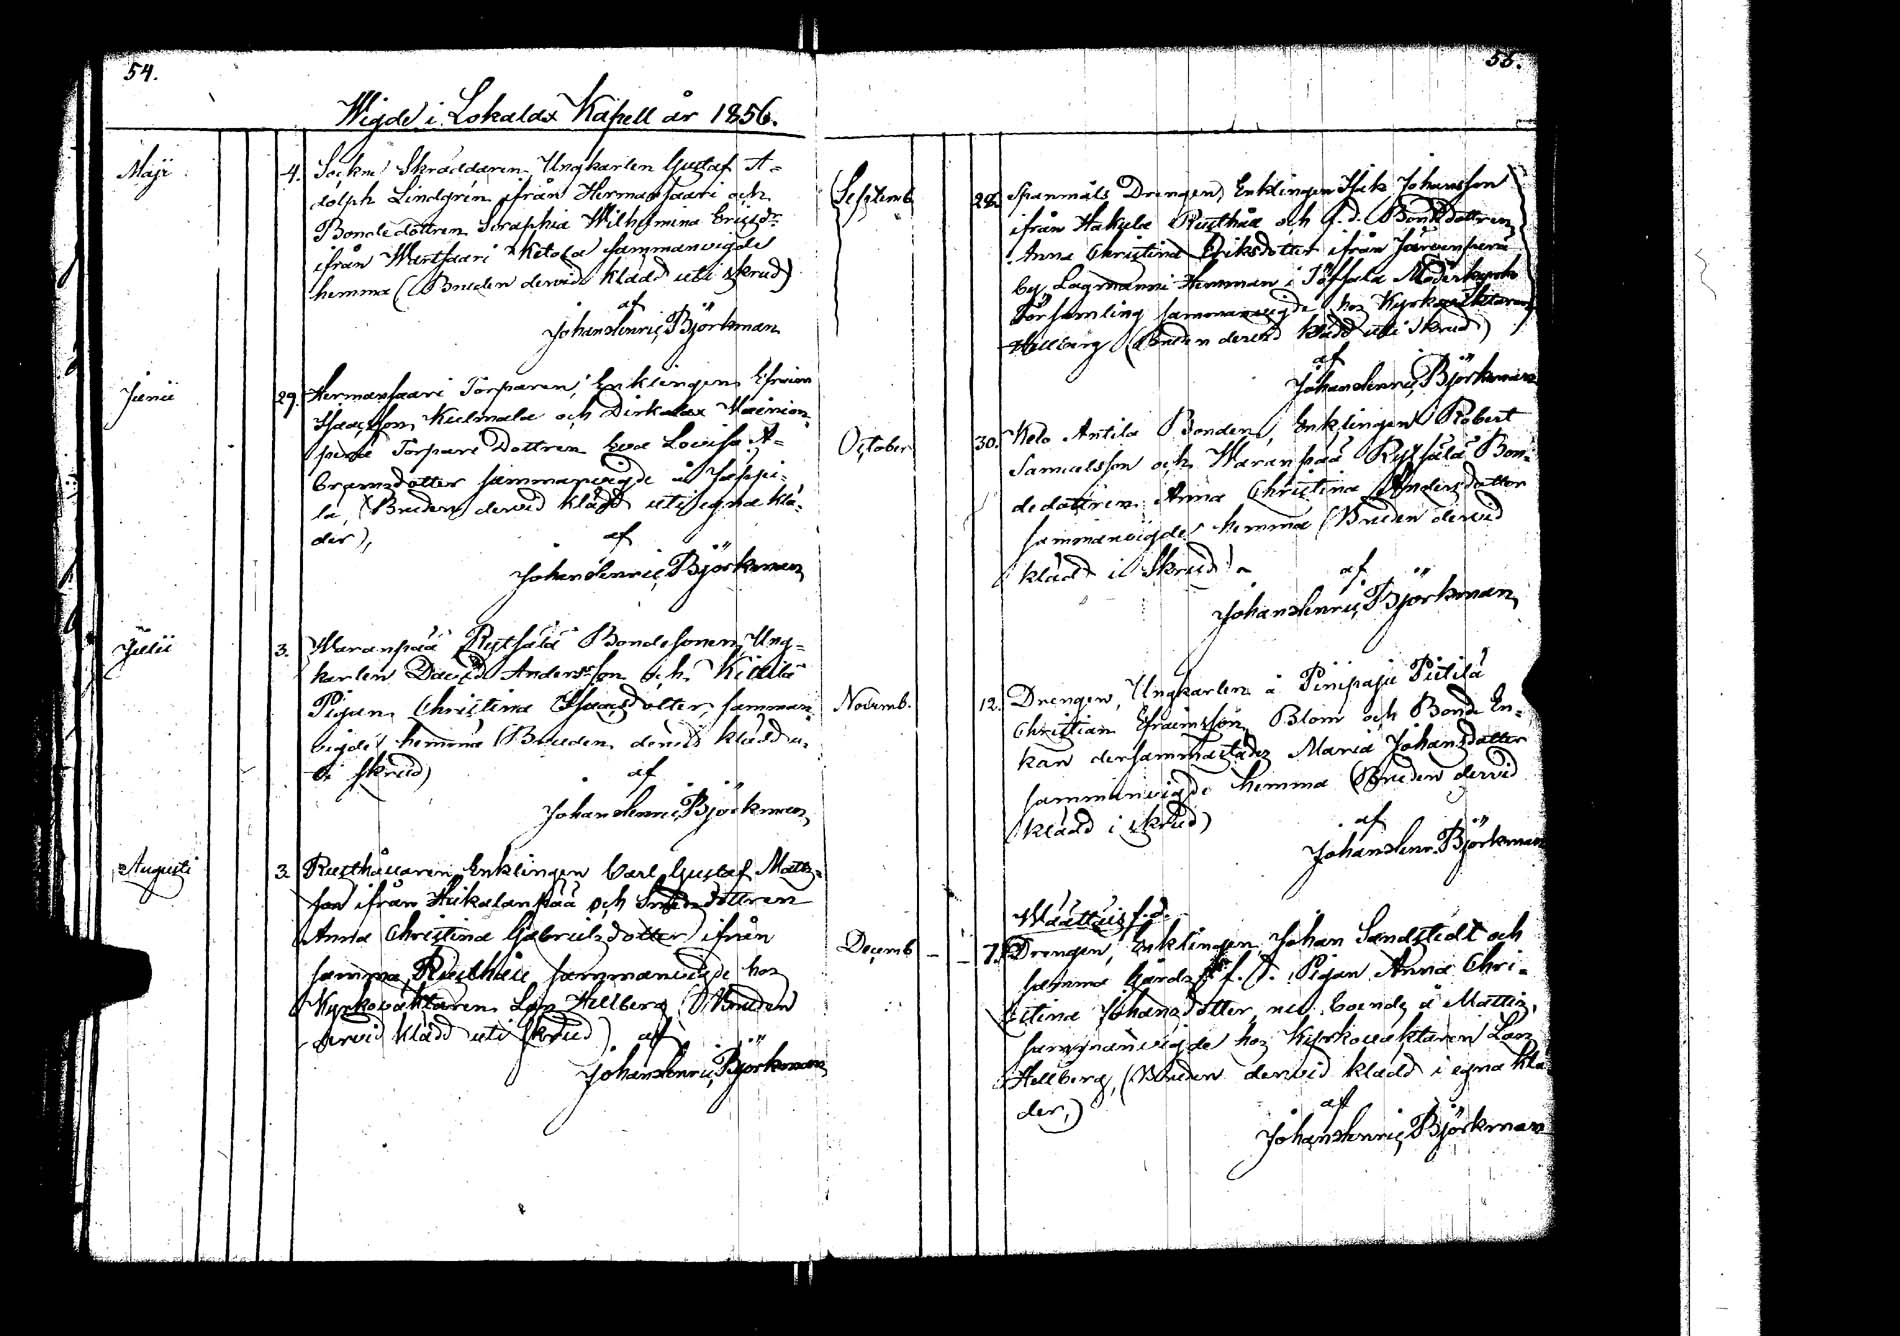 54.
Wigde i Lokalax Kapell år 1856.
Maji 4. Sockne Skräddaren, Ungkarlen Gustaf A=
dolph Lindgrén ifrån Hermansaari och
Bondedottren Seraphia Wilhelmina Ericsdr
ifrån Wartsaari Ketola sammanvigde
hemma (Bruden dervid klädd uti skrud)
af
Johan Henric Björkman
Junii 29. Hermansaari Torparen, Enklingen Efraim
Isacsson Kulmala och Dirkalax Wainion=
perä Torpare Dottren Eva Lovisa A=
bramsdotter sammanvigde å Jäppi=
lä, (Bruden dervid klädd uti egna klä=
der),
af
Johan Henric Björkman
Julii 3. Waranpää Rytsälä Bondesonen, Ung=
karlen David Andersson och Kittilä
Pigan Christina Isacsdotter, samman=
vigde hemma (Bruden dervid klädd u=
ti skrud)
af
Johan Henric Björkman
Augusti 3. Rusthållaren Enklingen Carl Gustaf Matts=
son ifrån Hukalanpää och dottren
Anna Christina Gabrielsdotter ifrån
samma Rusthåll sammanvigde hos
Kyrkovaktaren Lars Hellberg (Bruden
dervid klädd uti skrud) af
Johan Henric Björkman
55.
Septemb. 28. Spanmåls Drengen, Enklingen Isak Johansson
ifrån Hakula Rusthåll och f.d. Bondedottren
Anna Christina Eriksdotter ifrån Järvenperä
by Lagmanni Hemman i Töfsala Moderkyrko
Församling sammanvigde hos Kyrkovaktaren
Hellberg (Bruden dervid klädd uti skrud)
af
Johan Henric Björkman
October 30. Kelo Antila Bonden, Enklingen Robert
Samuelsson och Waranpää Rytsälä Bon=
dedottren Anna Christina Andersdotter
sammanvigde hemma (Bruden dervid
klädd i Skrud)
af
Johan Henric Björkman
Novemb. 12. Drengen, Ungkarlen å Pinipaju Pietilä
Christian Efraimsson Blom och Bonde En=
kan dersammastädes Maria Johansdotter
sammanvigde hemma (Bruden dervid
klädd i skrud)
af
Johan Henr. Björkman
Wäättäis f.d.
Decemb. 7. Drengen, Enklingen Johan Sandstedt och
samma Gårds f.d. Pigan Anna Chri=
stina Johansdotter nu boende å Mattis,
sammanvigde hos Kyrkovaktaren Lars
Hellberg, (Bruden dervid klädd i egna klä
der,)
af
Johan Henric Björkman